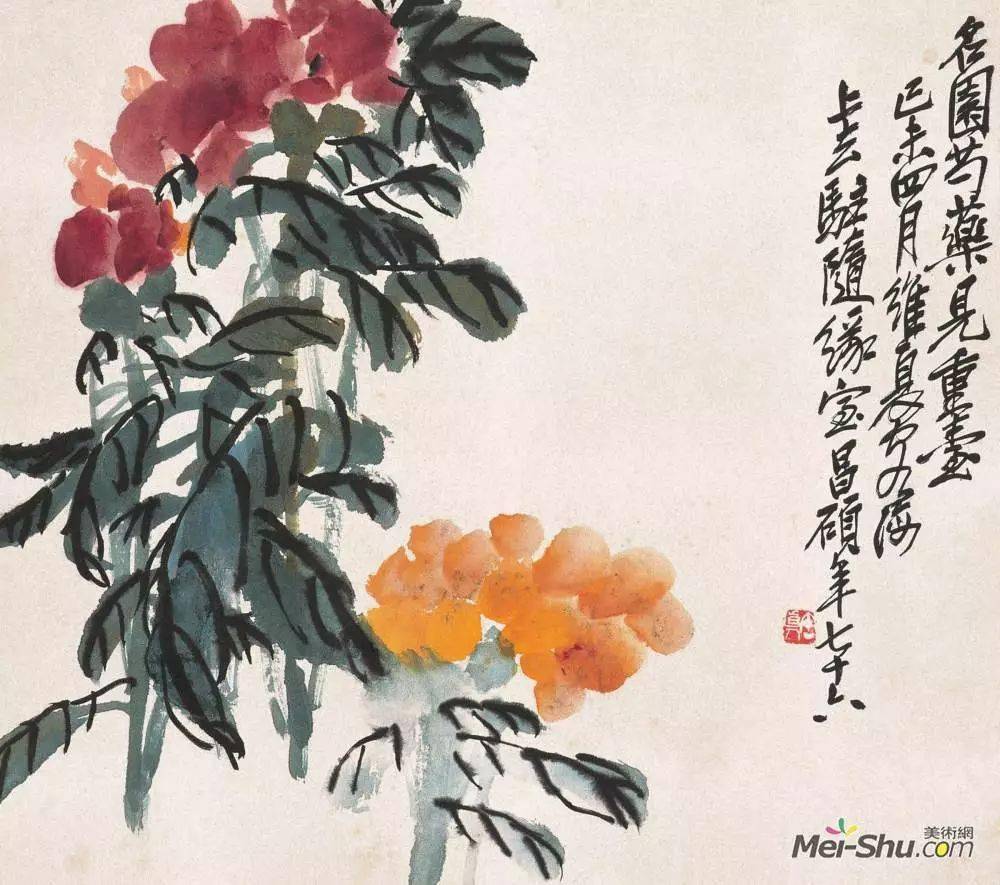 名園芍藥見重臺
己未四月維夏
上去駐隨緣室昌碩年七十六
美術網
Mei-Shu.com